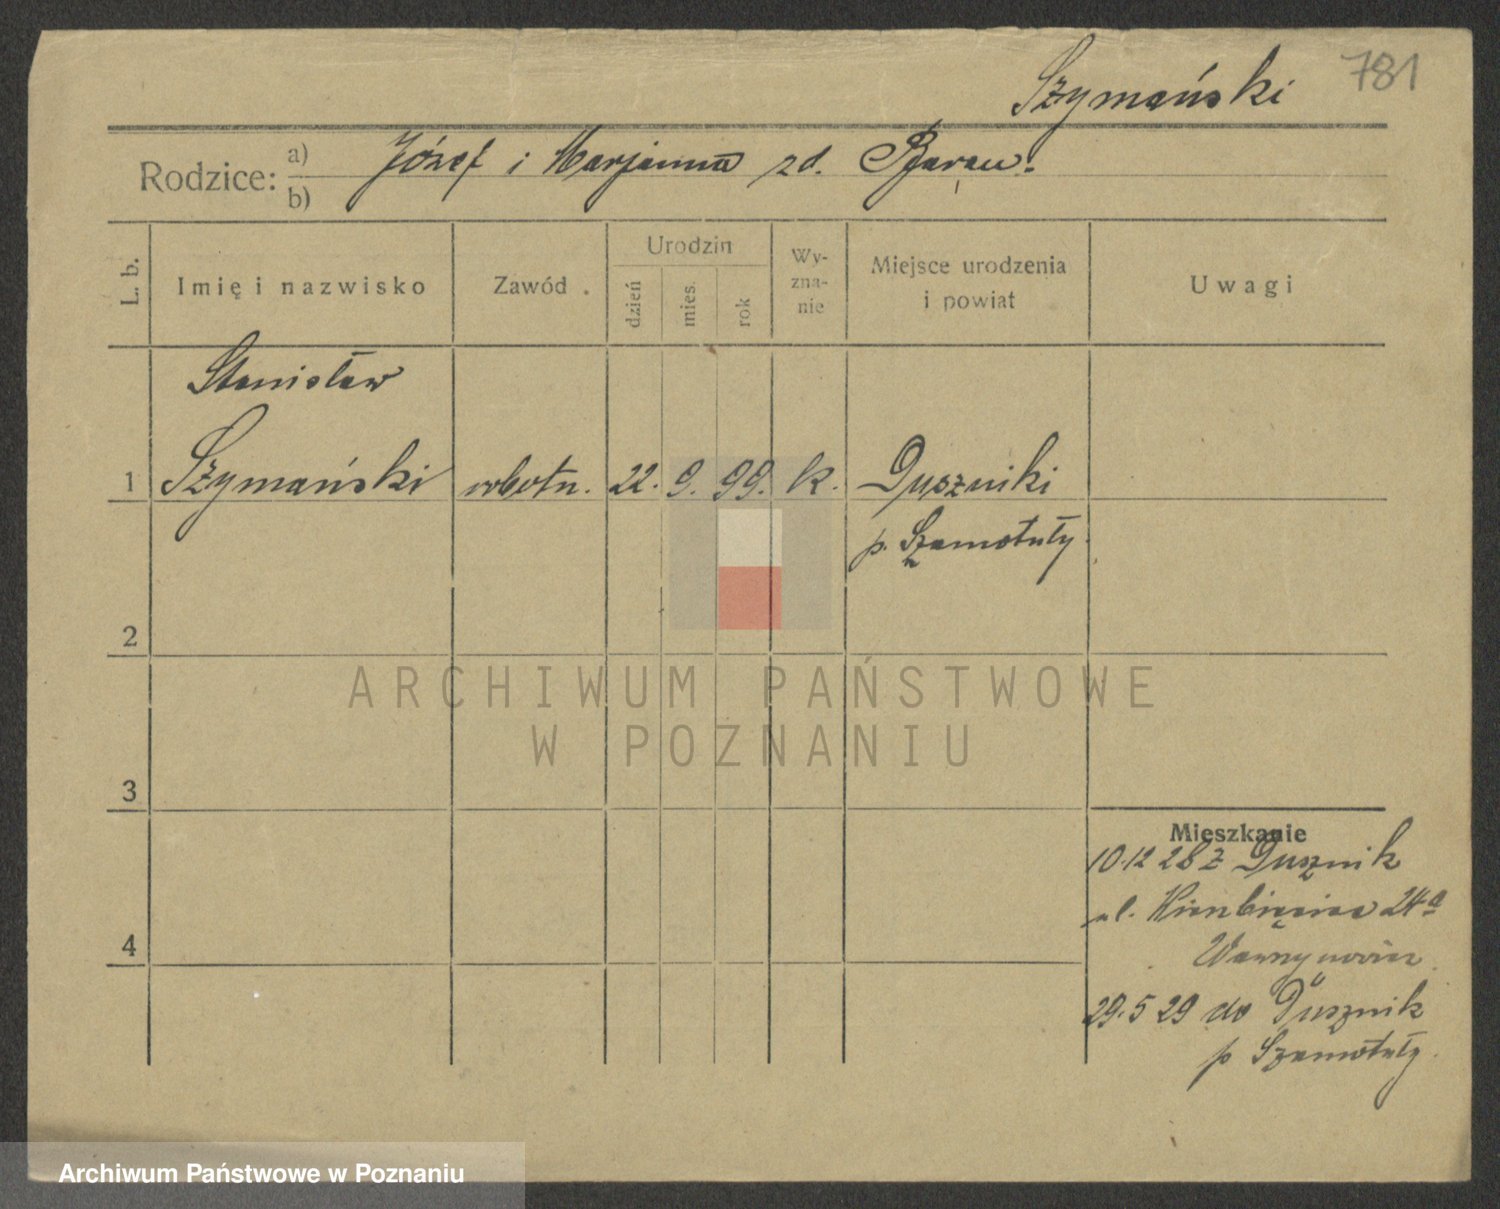 Szymański 781
Rodzice: a) Józef i Marjanna zd.
b)
L. b.
Imię i nazwisko
Zawód
Urodzin
dzień
mies.
rok
Wy-
zna-
nie
Miejsce urodzenia
i powiat
Uwagi
Stanisław
1 Szymański robotn. 22. 9. 99. k. Duszniki
p. Szamotuły
2
3
4
Mieszkanie
10.12 28 z Dusznik
ul. 24a
29.5 29 do Dusznik
p Szamotuły
ARCHIWUM PAŃSTWOWE
W POZNANIU
Archiwum Państwowe w Poznaniu